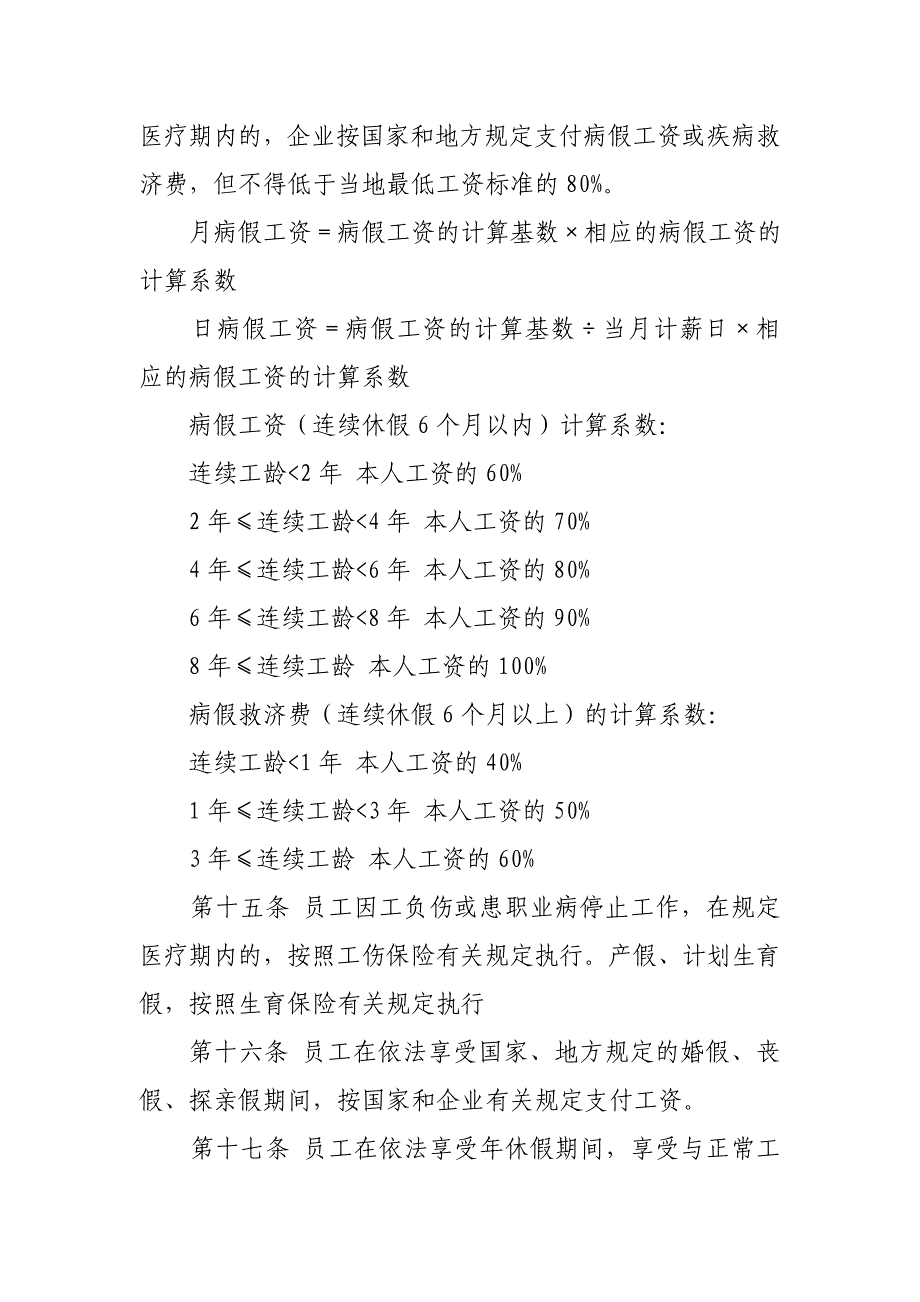 医疗期内的，企业按国家和地方规定支付病假工资或疾病救
济费，但不得低于当地最低工资标准的80%。
月病假工资=病假工资的计算基数×相应的病假工资的
计算系数
日病假工资=病假工资的计算基数÷当月计薪日×相
应的病假工资的计算系数
病假工资（连续休假6个月以内）计算系数：
连续工龄<2年 本人工资的60%
2年≤连续工龄<4年 本人工资的70%
4年≤连续工龄<6年 本人工资的80%
6年≤连续工龄<8年 本人工资的90%
8年≤连续工龄 本人工资的100%
病假救济费（连续休假6个月以上）的计算系数：
连续工龄<1年 本人工资的40%
1年≤连续工龄<3年 本人工资的50%
3年≤连续工龄 本人工资的60%
第十五条 员工因工负伤或患职业病停止工作，在规定
医疗期内的，按照工伤保险有关规定执行。产假、计划生育
假，按照生育保险有关规定执行
第十六条 员工在依法享受国家、地方规定的婚假、丧
假、探亲假期间，按国家和企业有关规定支付工资。
第十七条 员工在依法享受年休假期间，享受与正常工